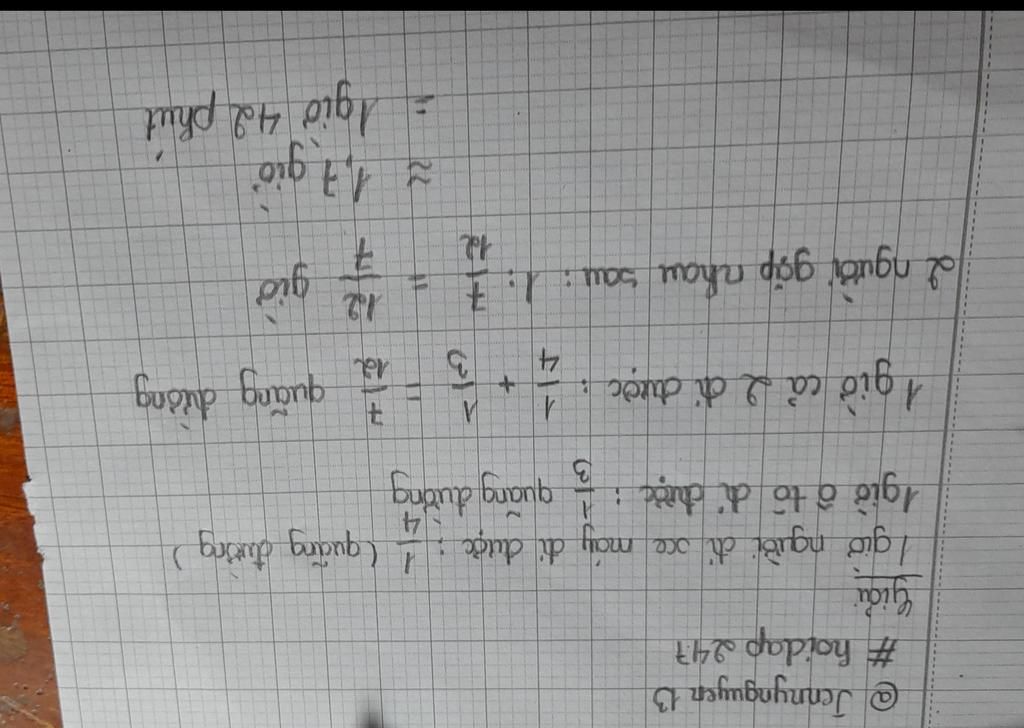 @ Jennynguyen 13
# hoidap 247
Giải
1 giờ người đi xe máy đi được : 1/4 ( quãng đường )
1 giờ ô tô đi được : 1/3 quãng đường
1 giờ cả 2 đi được : 1/4 + 1/3 = 7/12 quãng đường
2 người gặp nhau sau : 1 : 7/12 = 12/7 giờ
≈ 1,7 giờ
= 1 giờ 42 phút